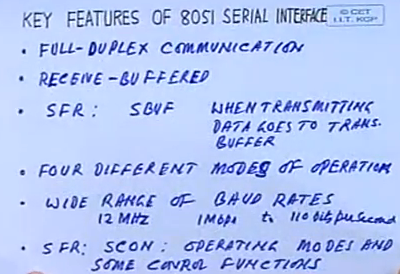 KEY FEATURES OF 8051 SERIAL INTERFACE
© CET
I.I.T. KGP
• FULL-DUPLEX COMMUNICATION
• RECEIVE-BUFFERED
• SFR: SBUF WHEN TRANSMITTING
DATA GOES TO TRANS.
BUFFER
• FOUR DIFFERENT MODES OF OPERATION
• WIDE RANGE OF BAUD RATES
12 MHZ 1Mbps to 110 bits per second
• SFR: SCON: OPERATING MODES AND
SOME CONROL FUNCTIONS